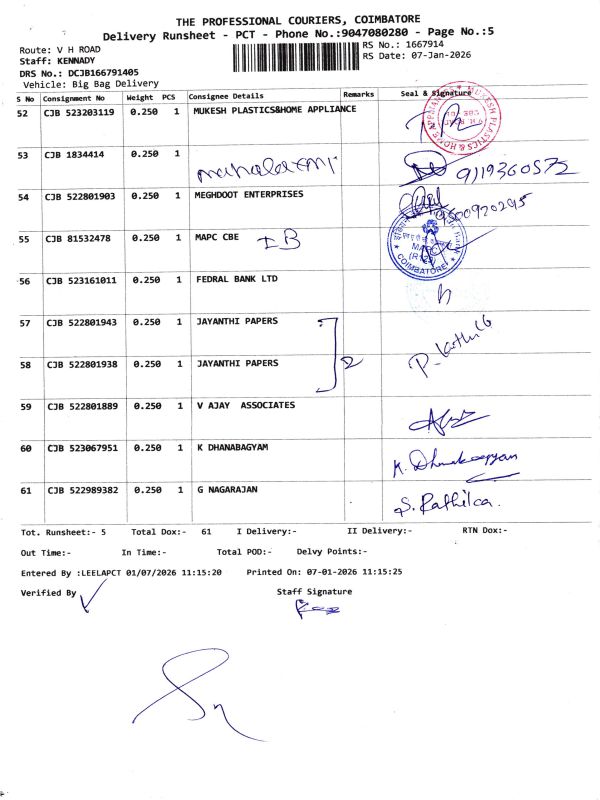 THE PROFESSIONAL COURIERS, COIMBATORE
Delivery Runsheet - PCT - Phone No.:9047080280 - Page No.:5
Route: V H ROAD
RS No.: 1667914
Staff: KENNADY
RS Date: 07-Jan-2026
DRS No.: DCJB166791405
Vehicle: Big Bag Delivery
S No Consignment No Weight PCS Consignee Details Remarks Seal & Signature
52 CJB 523203119 0.250 1 MUKESH PLASTICS&HOME APPLIANCE
MUKESH PLASTICS & HOME APPLIANCES
53 CJB 1834414 0.250 1 mahalaxmi 9119360572
54 CJB 522801903 0.250 1 MEGHDOOT ENTERPRISES 9600920295
55 CJB 81532478 0.250 1 MAPC CBE IB
COIMBATORE
56 CJB 523161011 0.250 1 FEDRAL BANK LTD
57 CJB 522801943 0.250 1 JAYANTHI PAPERS
58 CJB 522801938 0.250 1 JAYANTHI PAPERS 2
59 CJB 522801889 0.250 1 V AJAY ASSOCIATES
60 CJB 523067951 0.250 1 K DHANABAGYAM K. Dhanabagyam
61 CJB 522989382 0.250 1 G NAGARAJAN
Tot. Runsheet:- 5 Total Dox:- 61 I Delivery:- II Delivery:- RTN Dox:-
Out Time:- In Time:- Total POD:- Delvy Points:-
Entered By :LEELAPCT 01/07/2026 11:15:20 Printed On: 07-01-2026 11:15:25
Verified By Staff Signature